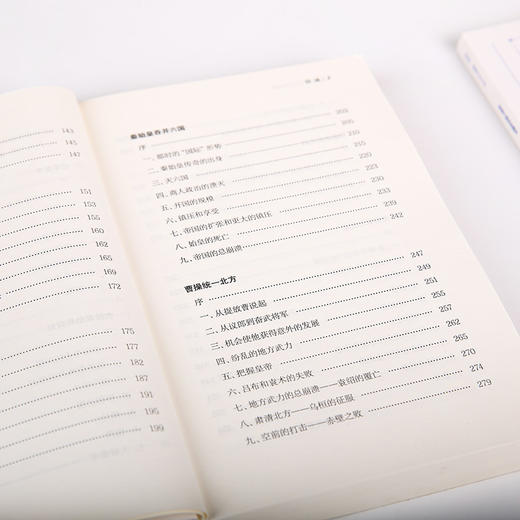 143
145
151
155
160
162
165
169
172
175
177
182
187
191
195
199
秦始皇吞并六国
序 203
一、那时的“国际”形势 205
二、秦始皇传奇的出身 210
三、灭六国 215
四、商人政治的澹灭 220
五、开国的规模 223
六、镇压和享受
七、帝国的扩张和更大的镇压
八、始皇的死亡
九、帝国的总崩溃 242
曹操统一北方
序 247
一、从捉放曹说起 249
二、从议郎到奋武将军 251
三、机会使他获得意外的发展 255
四、纷乱的地方武力 257
五、把握皇帝 262
六、吕布和袁术的失败 265
七、地方武力的总崩溃——袁绍的覆亡 270
八、肃清北方——乌桓的征服 274
九、空前的打击——赤壁之败 279